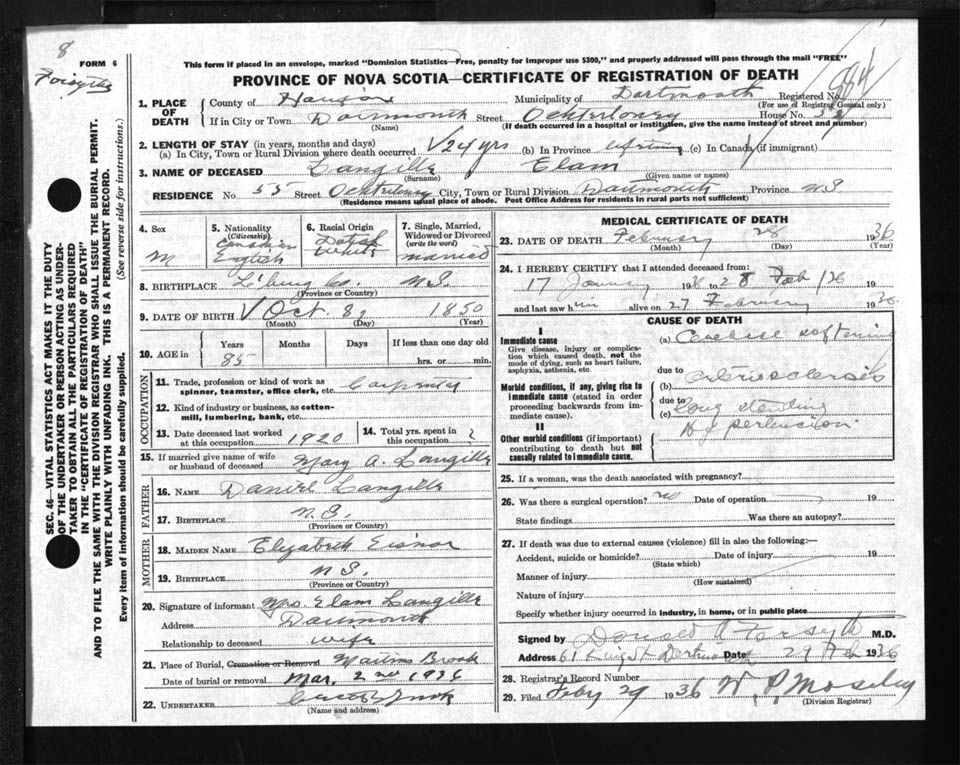 8
Forsyth
FORM 6
This form if placed in an envelope, marked "Dominion Statistics—Free, penalty for improper use $300," and properly addressed will pass through the mail "FREE"
PROVINCE OF NOVA SCOTIA—CERTIFICATE OF REGISTRATION OF DEATH
1. PLACE OF DEATH
County of Halifax Municipality of Dartmouth Registered No.
(For use of Registrar General only)
If in City or Town Dartmouth Street Ochterloney House No.
(Name) (If death occurred in a hospital or institution, give the name instead of street and number)
2. LENGTH OF STAY (in years, months and days)
(a) In City, Town or Rural Division where death occurred 24 yrs (b) In Province lifetime (c) In Canada (if immigrant)
3. NAME OF DECEASED Langille Elam
(Surname) (Given name or names)
RESIDENCE No 55 Street Ochterloney City, Town or Rural Division Dartmouth Province N.S.
(Residence means usual place of abode. Post Office Address for residents in rural parts not sufficient)
4. Sex
M
5. Nationality (Citizenship)
Canadian
English
6. Racial Origin
White
7. Single, Married, Widowed or Divorced (write the word)
married
8. BIRTHPLACE L'burg Co. N.S.
(Province or Country)
9. DATE OF BIRTH Oct. 8, 1850
(Month) (Day) (Year)
10. AGE in
Years Months Days If less than one day old
85 hrs. or min.
OCCUPATION
11. Trade, profession or kind of work as spinner, teamster, office clerk, etc. Carpenter
12. Kind of industry or business, as cotton-mill, lumbering, bank, etc.
13. Date deceased last worked at this occupation 1920
14. Total yrs. spent in this occupation ?
15. If married give name of wife or husband of deceased Mary A. Langille
FATHER
16. NAME Daniel Langille
17. BIRTHPLACE N.S.
(Province or Country)
MOTHER
18. MAIDEN NAME Elizabeth Eisnor
19. BIRTHPLACE N.S.
(Province or Country)
20. Signature of informant Mrs. Elam Langille
Address Dartmouth
Relationship to deceased wife
21. Place of Burial, Cremation or Removal Martins Brook
Date of burial or removal Mar. 2nd 1936
22. UNDERTAKER
(Name and address)
MEDICAL CERTIFICATE OF DEATH
23. DATE OF DEATH February 28 1936
(Month) (Day) (Year)
24. I HEREBY CERTIFY that I attended deceased from:
17 January 1936 to 28 Feb /36
and last saw him alive on 27 February 1936
CAUSE OF DEATH
I
Immediate cause
Give disease, injury or complication which caused death, not the mode of dying, such as heart failure, asphyxia, asthenia, etc.
(a) Cerebral softening
Morbid conditions, if any, giving rise to immediate cause (stated in order proceeding backwards from immediate cause).
due to
(b) arteriosclerosis
due to
(c) long standing
Hypertension
II
Other morbid conditions (if important) contributing to death but not causally related to immediate cause.
25. If a woman, was the death associated with pregnancy?
26. Was there a surgical operation? no Date of operation 19
State findings Was there an autopsy?
27. If death was due to external causes (violence) fill in also the following:—
Accident, suicide or homicide? Date of injury 19
(State which)
Manner of injury
(How sustained)
Nature of injury
Specify whether injury occurred in industry, in home, or in public place
Signed by Donald A Forsyth M.D.
Address 61 King St Dartmouth Date 29 Feb 1936
28. Registrar's Record Number
29. Filed Feby 29 1936 W. P. Moseley
(Division Registrar)
SEC. 46—VITAL STATISTICS ACT MAKES IT THE DUTY
OF THE UNDERTAKER OR PERSON ACTING AS UNDER-
TAKER TO OBTAIN ALL THE PARTICULARS REQUIRED
IN THE "CERTIFICATE OF REGISTRATION OF DEATH"
AND TO FILE THE SAME WITH THE DIVISION REGISTRAR WHO SHALL ISSUE THE BURIAL PERMIT.
WRITE PLAINLY WITH UNFADING INK. THIS IS A PERMANENT RECORD.
Every item of information should be carefully supplied. (See reverse side for instructions.)